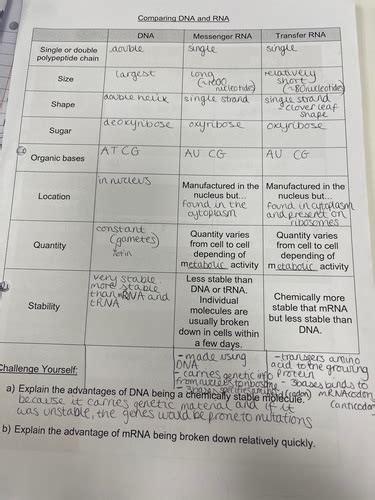 Comparing DNA and RNA
DNA Messenger RNA Transfer RNA
Single or double polypeptide chain double single single
Size largest long (~1000 nucleotides) relatively short (~80nucleotides)
Shape double helix single strand single strand clover leaf shape
Sugar deoxyribose oxyribose oxyribose
Organic bases AT CG AU CG AU CG
Location in nucleus Manufactured in the nucleus but... found in the cytoplasm Manufactured in the nucleus but... found in cytoplasm and present on ribosomes
Quantity constant (gametes) Quantity varies from cell to cell depending of metabolic activity Quantity varies from cell to cell depending of metabolic activity
Stability very stable. more stable than mRNA and tRNA Less stable than DNA or tRNA. Individual molecules are usually broken down in cells within a few days. Chemically more stable that mRNA but less stable than DNA.
- made using DNA
- carries genetic info from nucleus to ribosome
- 3 bases
- transfers amino acid to the growing protein
- 3 bases binds to mRNA codon (anticodon)
Challenge Yourself:
a) Explain the advantages of DNA being a chemically stable molecule.
because it carries genetic material and if it
was unstable, the genes would be prone to mutations
b) Explain the advantage of mRNA being broken down relatively quickly.